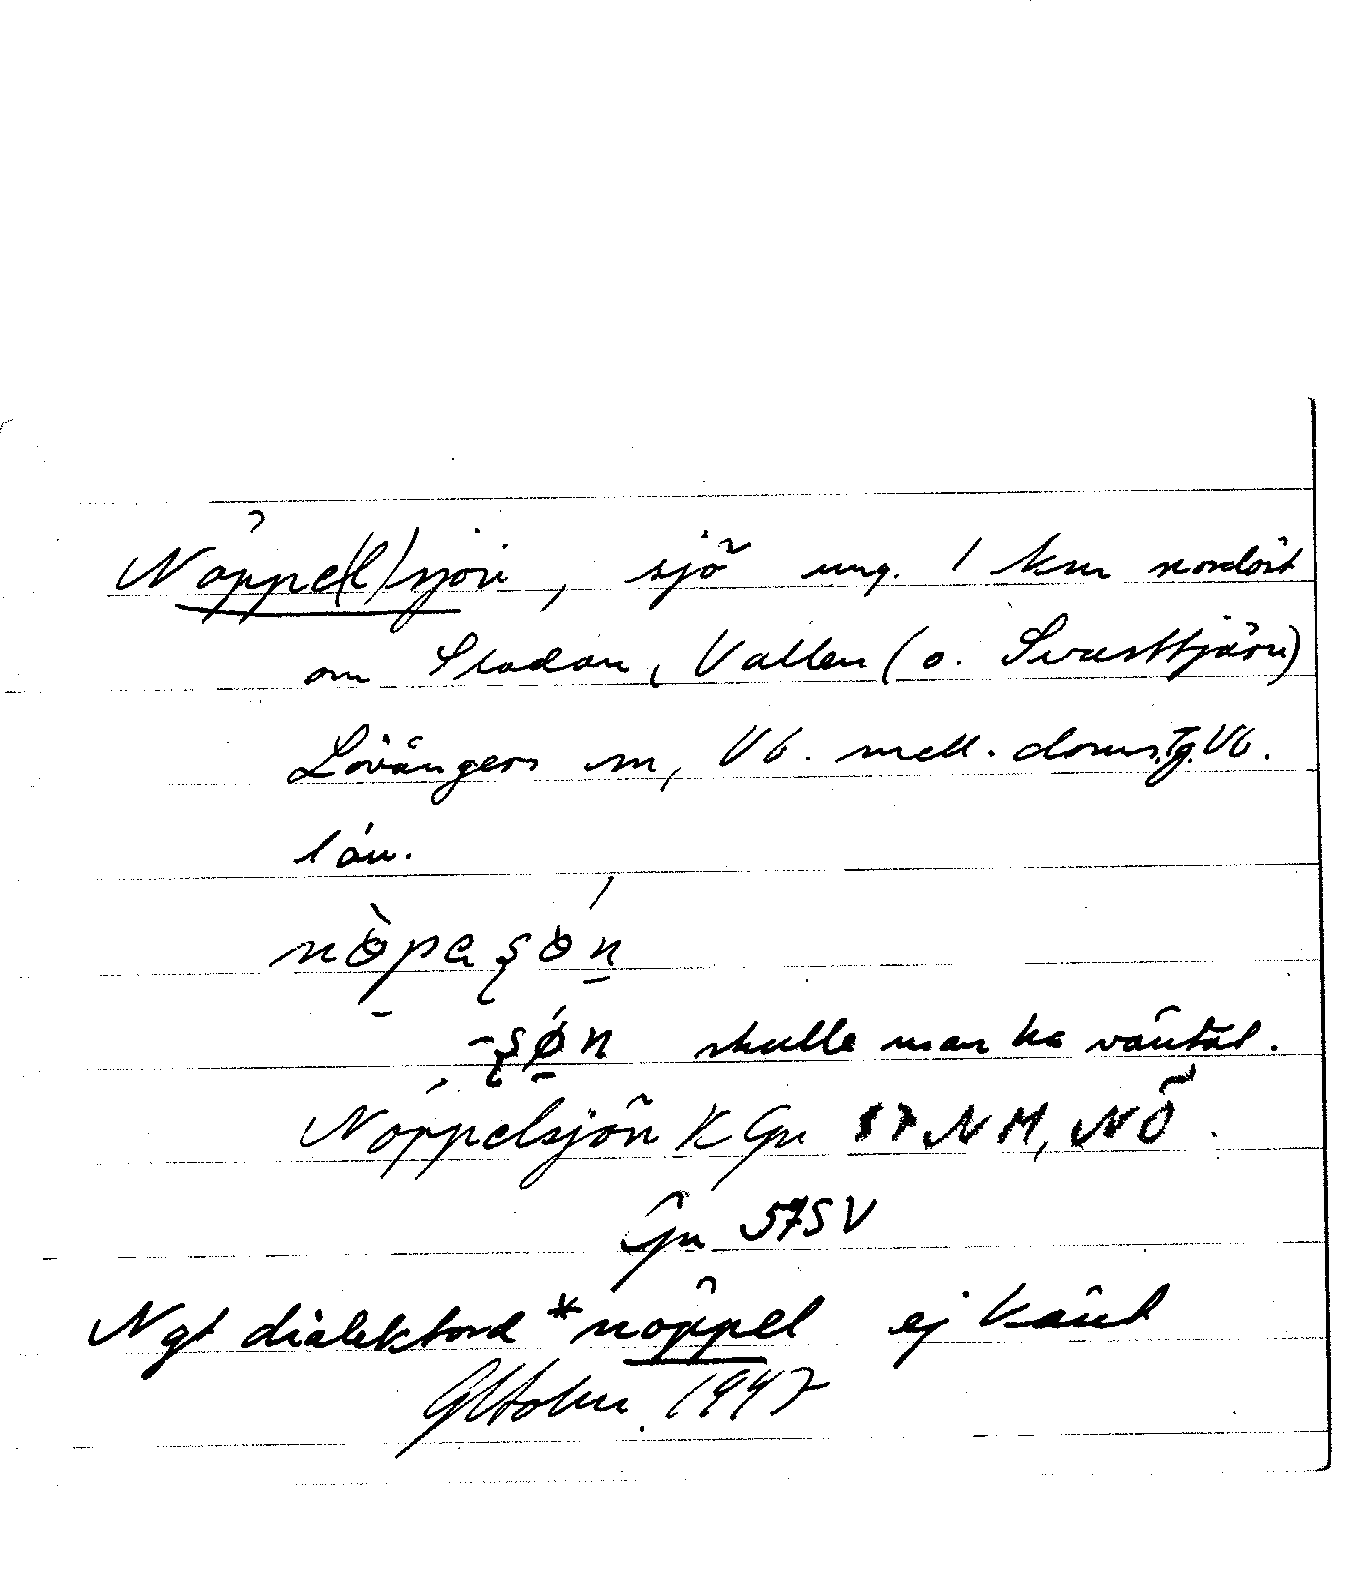 Nöppel(l)sjön, sjö ung. 1 km nordöst
om Sladan, Vallen (o. Svarttjärn)
Lövångers sn, Vb. mell. doms. Tg. Vb.
län.
nöpe şön
-şøn skulle man ha väntat.
Nöppelsjön K Gu 57 NM, NÖ.
Gu 57SV
Ngt dialektord *nöppel ej känt
GHolm. 1947